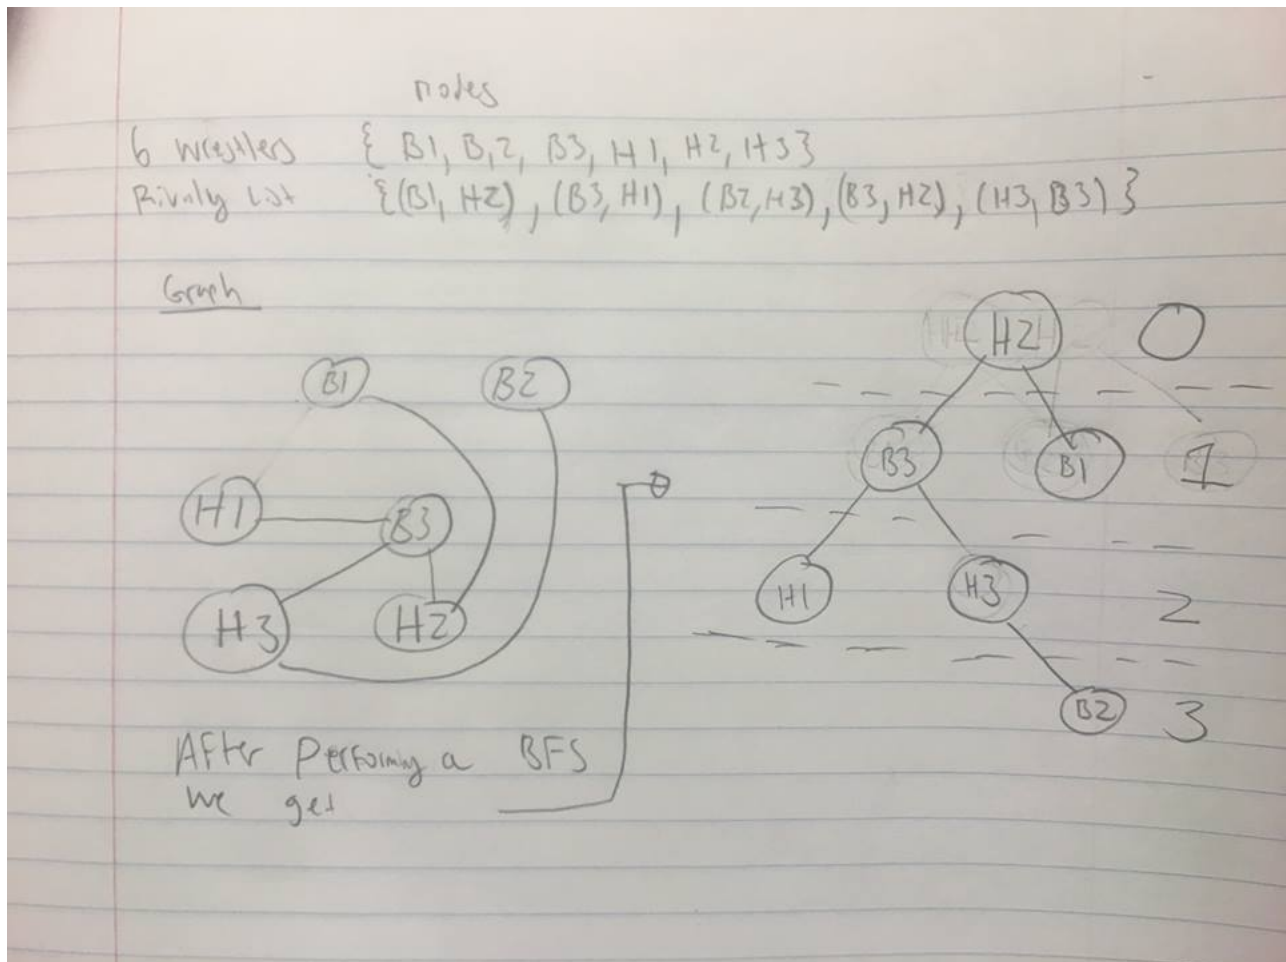 nodes
6 wrestlers { B1, B,2, B3, H1, H2, H3}
Rivalry List {(B1, H2), (B3, H1), (B2, H3), (B3, H2), (H3, B3) }
Graph
B1 B2
H1 B3
H3 H2
After Performing a BFS
we get
H2 0
B3 B1 1
H1 H3 2
B2 3